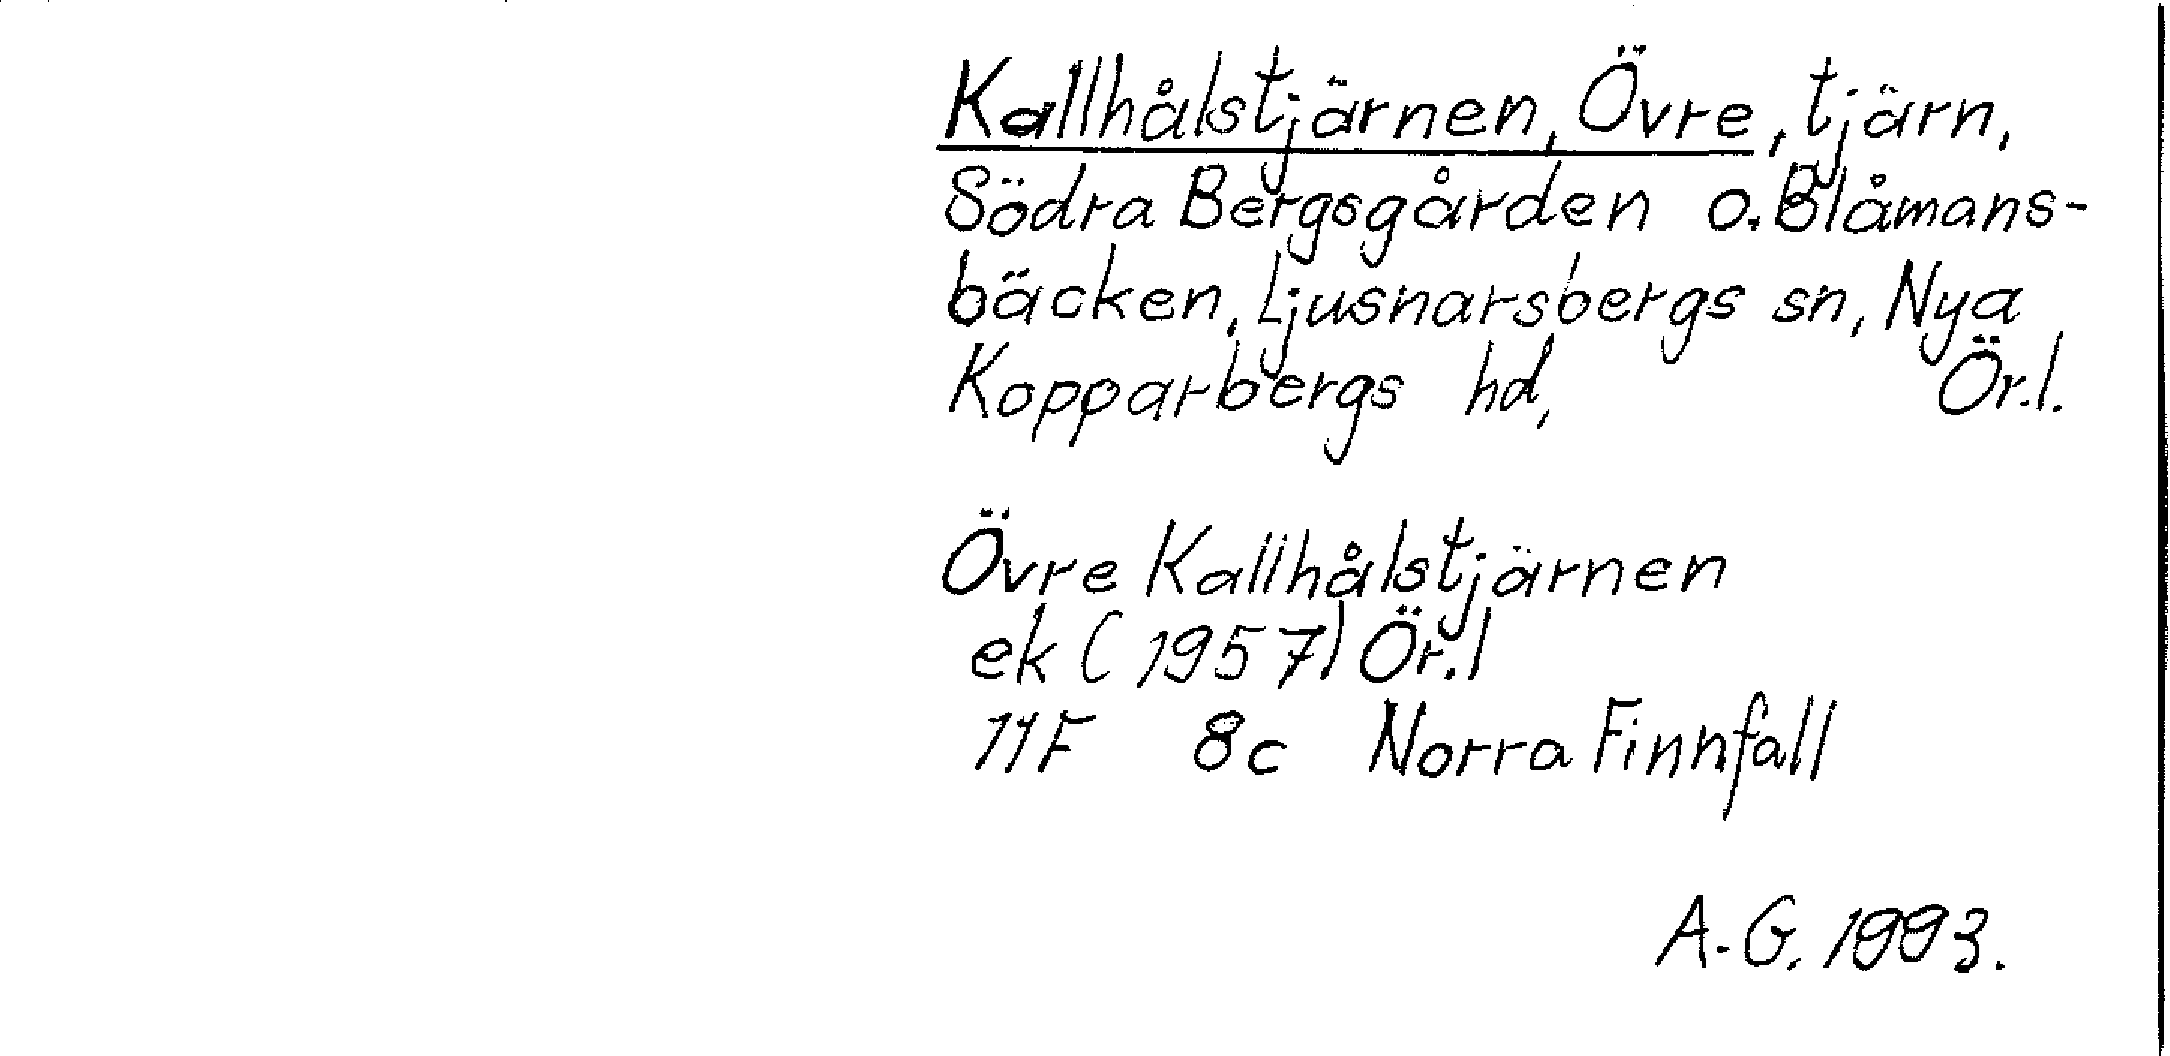 Kallhålstjärnen, Övre, tjärn,
Södra Bergsgården o. Blåmans-
bäcken, Ljusnarsbergs sn, Nya
Kopparbergs hd, Ör.l.
Övre Kallhålstjärnen
ek (1957) Ör.l
11F 8c Norra Finnfall
A.G. 1993.